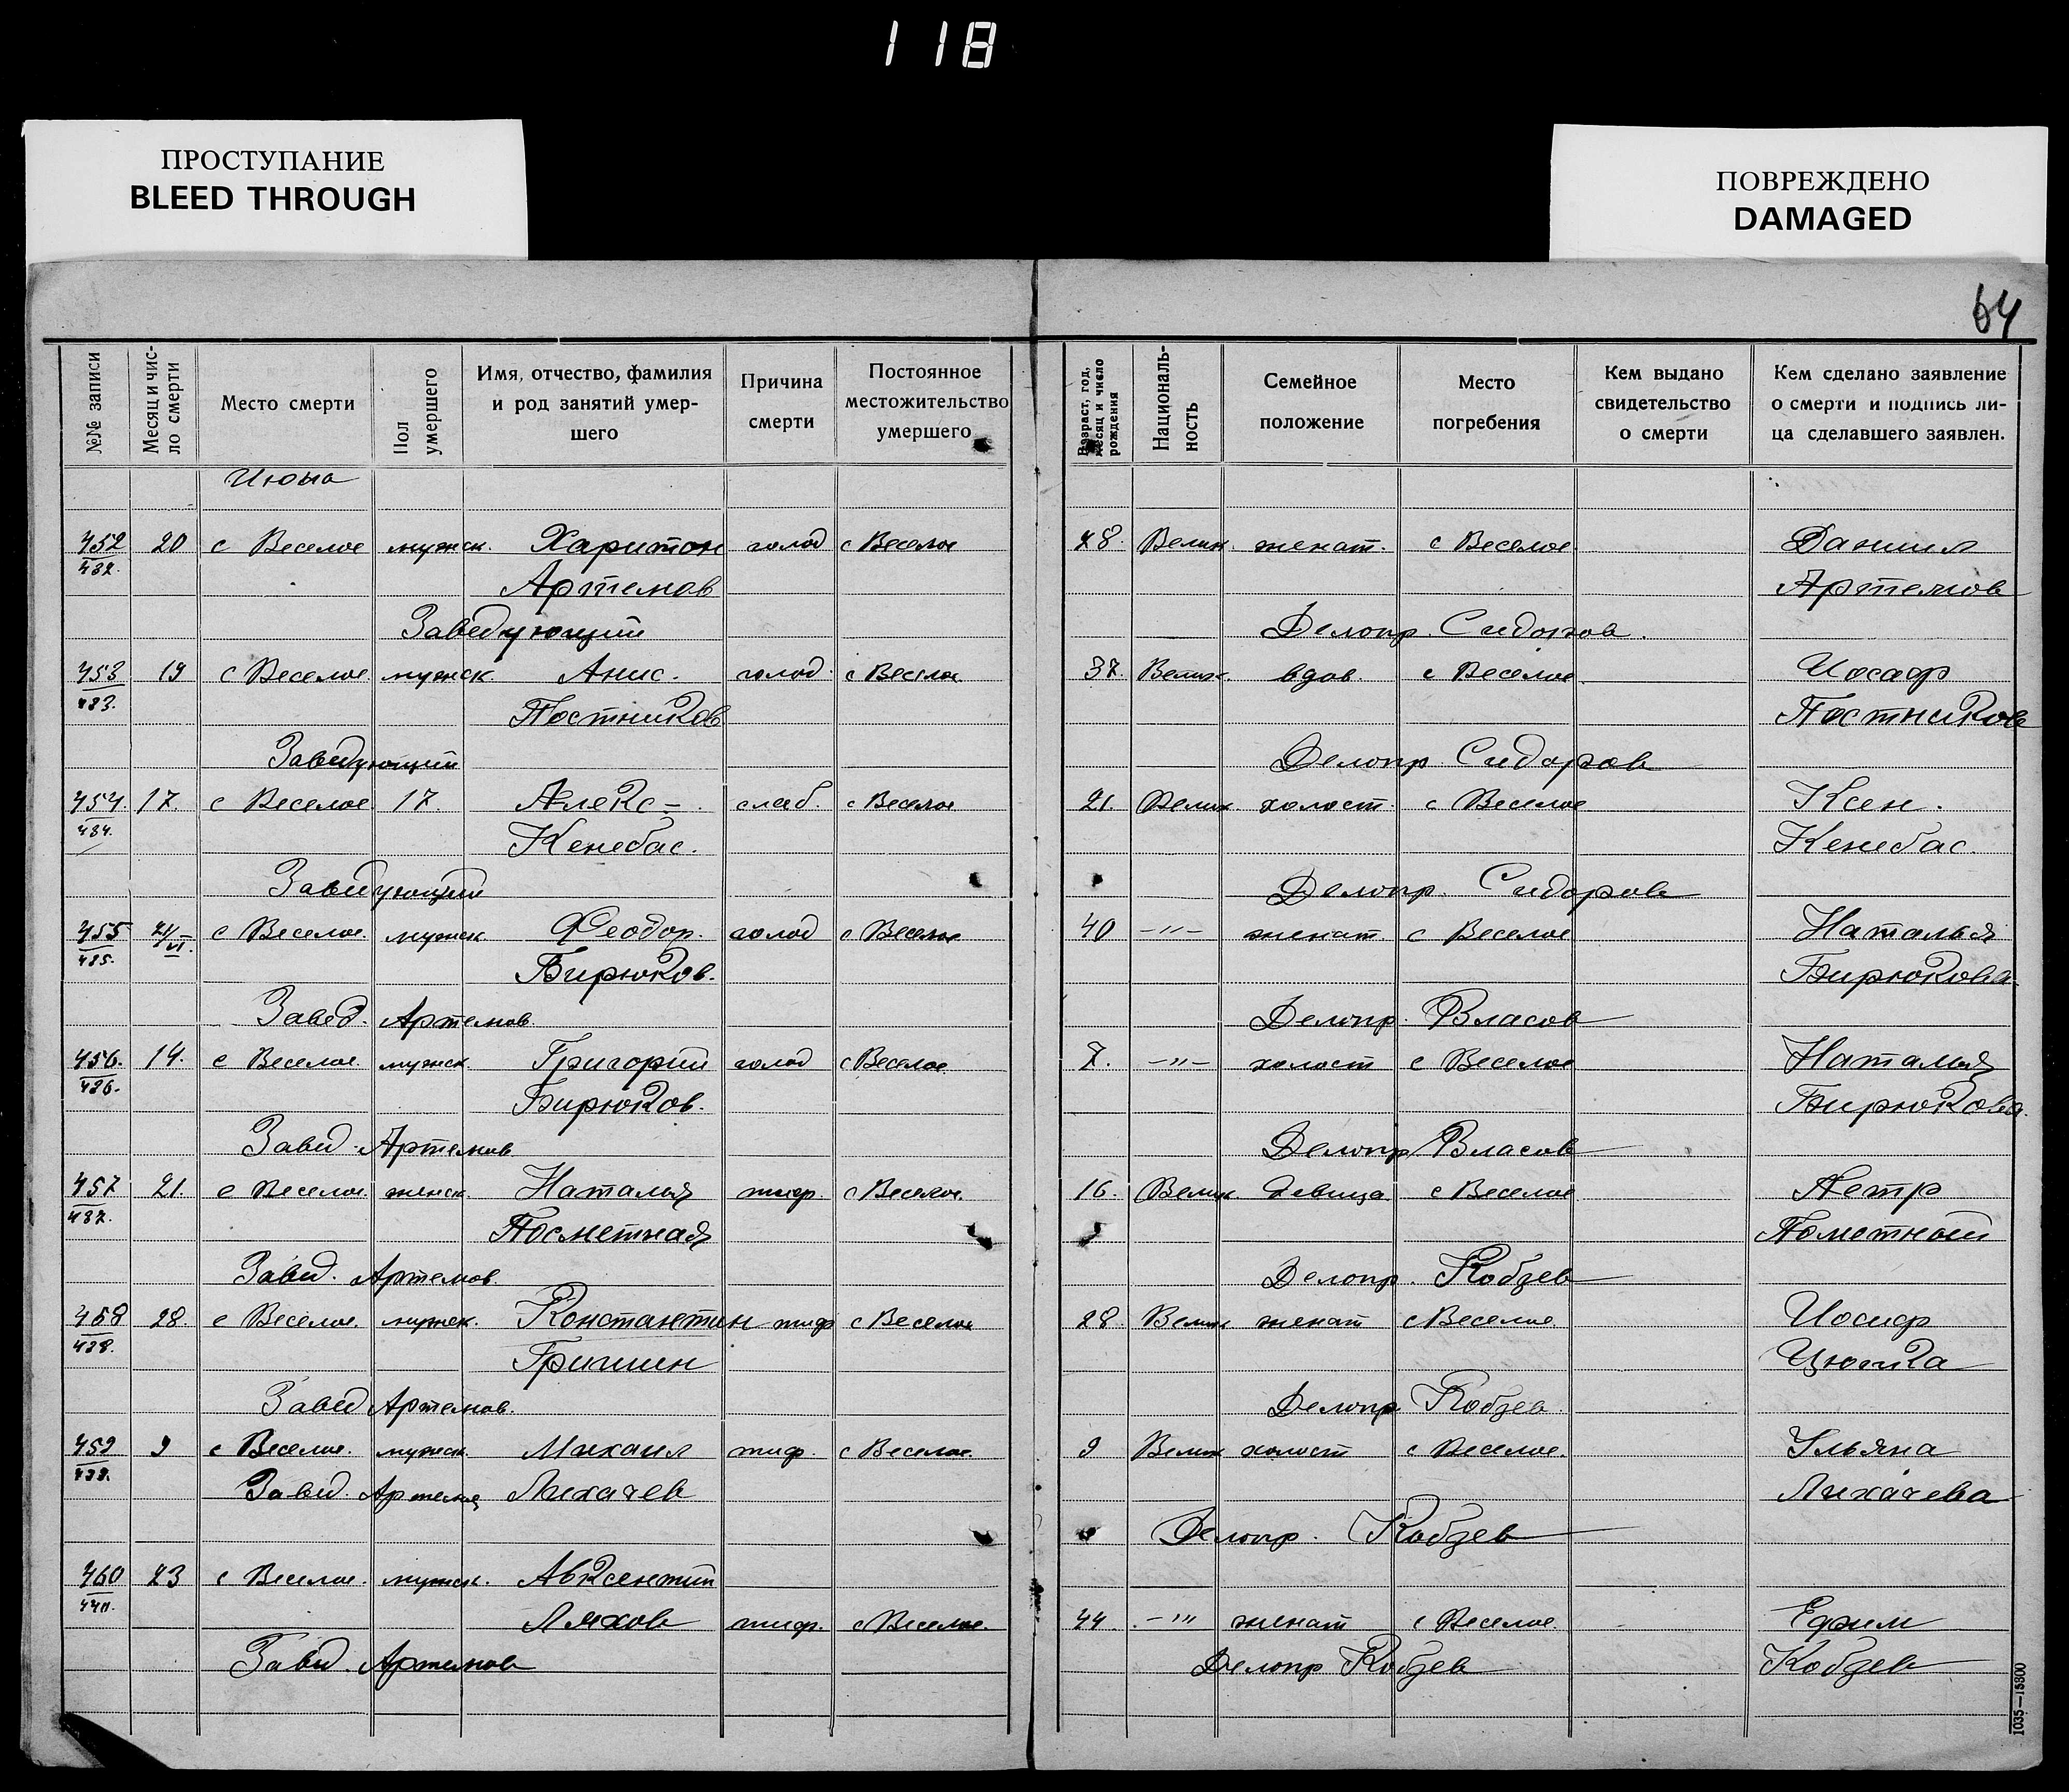 118
ПРОСТУПАНИЕ
BLEED THROUGH
ПОВРЕЖДЕНО
DAMAGED
64
№№ записи
Месяц и число смерти
Место смерти
Пол умершего
Имя, отчество, фамилия
и род занятий умер-
шего
Причина
смерти
Постоянное
местожительство
умершего
Возраст, год,
месяц и число
рождения
Националь-
ность
Семейное
положение
Место
погребения
Кем выдано
свидетельство
о смерти
Кем сделано заявление
о смерти и подпись ли-
ца сделавшего заявлен.
Июнь
452 20 с Веселое мужск. Харитон голод с Веселое 48. Велик. женат. с Веселое Даниил
432. Артемов Артемов
Заведующий Делопр. Сидоров.
453 19 с Веселое мужск Анис. голод с Веселое 37. Велик. вдов. с Веселое Иосаф
433. Постников Постников
Заведующий Делопр Сидоров
454 17. с Веселое 17. Алекс- слаб. с Веселое 21. Велик холост. с Веселое Ксен.
434. Кенебас. Кенебас.
Заведующий Делопр. Сидоров
455 21/VI. с Веселое. мужск Феодор. голод с Веселое 40 -"- женат. с Веселое Наталья
435. Бирюков. Бирюкова.
Завед. Артемов. Делопр. Власов
456. 14. с Веселое. мужск. Григорий голод с Веселое 7. -"- холост с Веселое Наталья
436. Бирюков. Бирюкова.
Завед. Артемов Делопр Власов
457 21. с Веселое. женск. Наталья тиф. с Веселое. 16. Велик девица с Веселое Петр
437. Посметная Пометный
Завед. Артемов. Делопр. Кобзев
458 28. с Веселое. мужск. Константин тиф с Веселое 28. Велик женат с Веселое Иосиф
438. Гришин
Завед Артемов. Делопр Кобзев.
459 9 с Веселое. мужск. Михаил тиф. с Веселое. 9 Велик холост с Веселое. Ульяна
439. Завед. Артемов Лихачев Лихачева
Делопр. Кобзев
460 23 с Веселое. мужск. Авксентий
440. Ляхов тиф. с Веселое. 44. -"" женат с Веселое. Ефим
Завед. Артемов Делопр Кобзев Кобзев
1035—15800